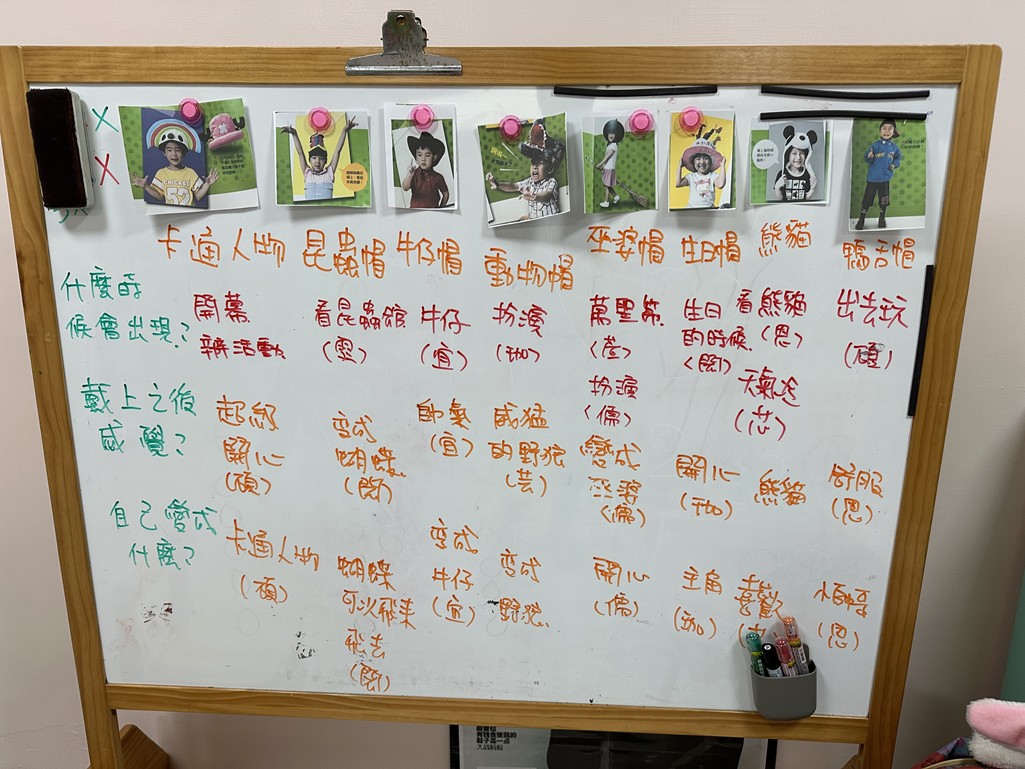 卡通人物 昆蟲帽 牛仔帽 動物帽 巫婆帽 生日帽 熊貓 帽
什麼時
候會出現?
開幕
辦活動
看昆蟲館
牛仔
(宜)
扮演
(珈)
萬聖節
扮演
(儒)
生日
的時候
(開)
看熊貓
(恩)
天氣炎
(芯)
出去玩
(碩)
戴上之後
感覺?
超級
開心
(碩)
变成
蝴蝶
(開)
帥氣
(宜)
威猛
的野狼
(芸)
變成
巫婆
(儒)
開心
(珈)
熊貓
舒服
(恩)
自己變成
什麼?
卡通人物
(碩)
蝴蝶
可以飛來
飛去
(開)
变成
牛仔
(宜)
变成
野狼
開心
(儒)
主角
(珈)
喜歡
(恩)